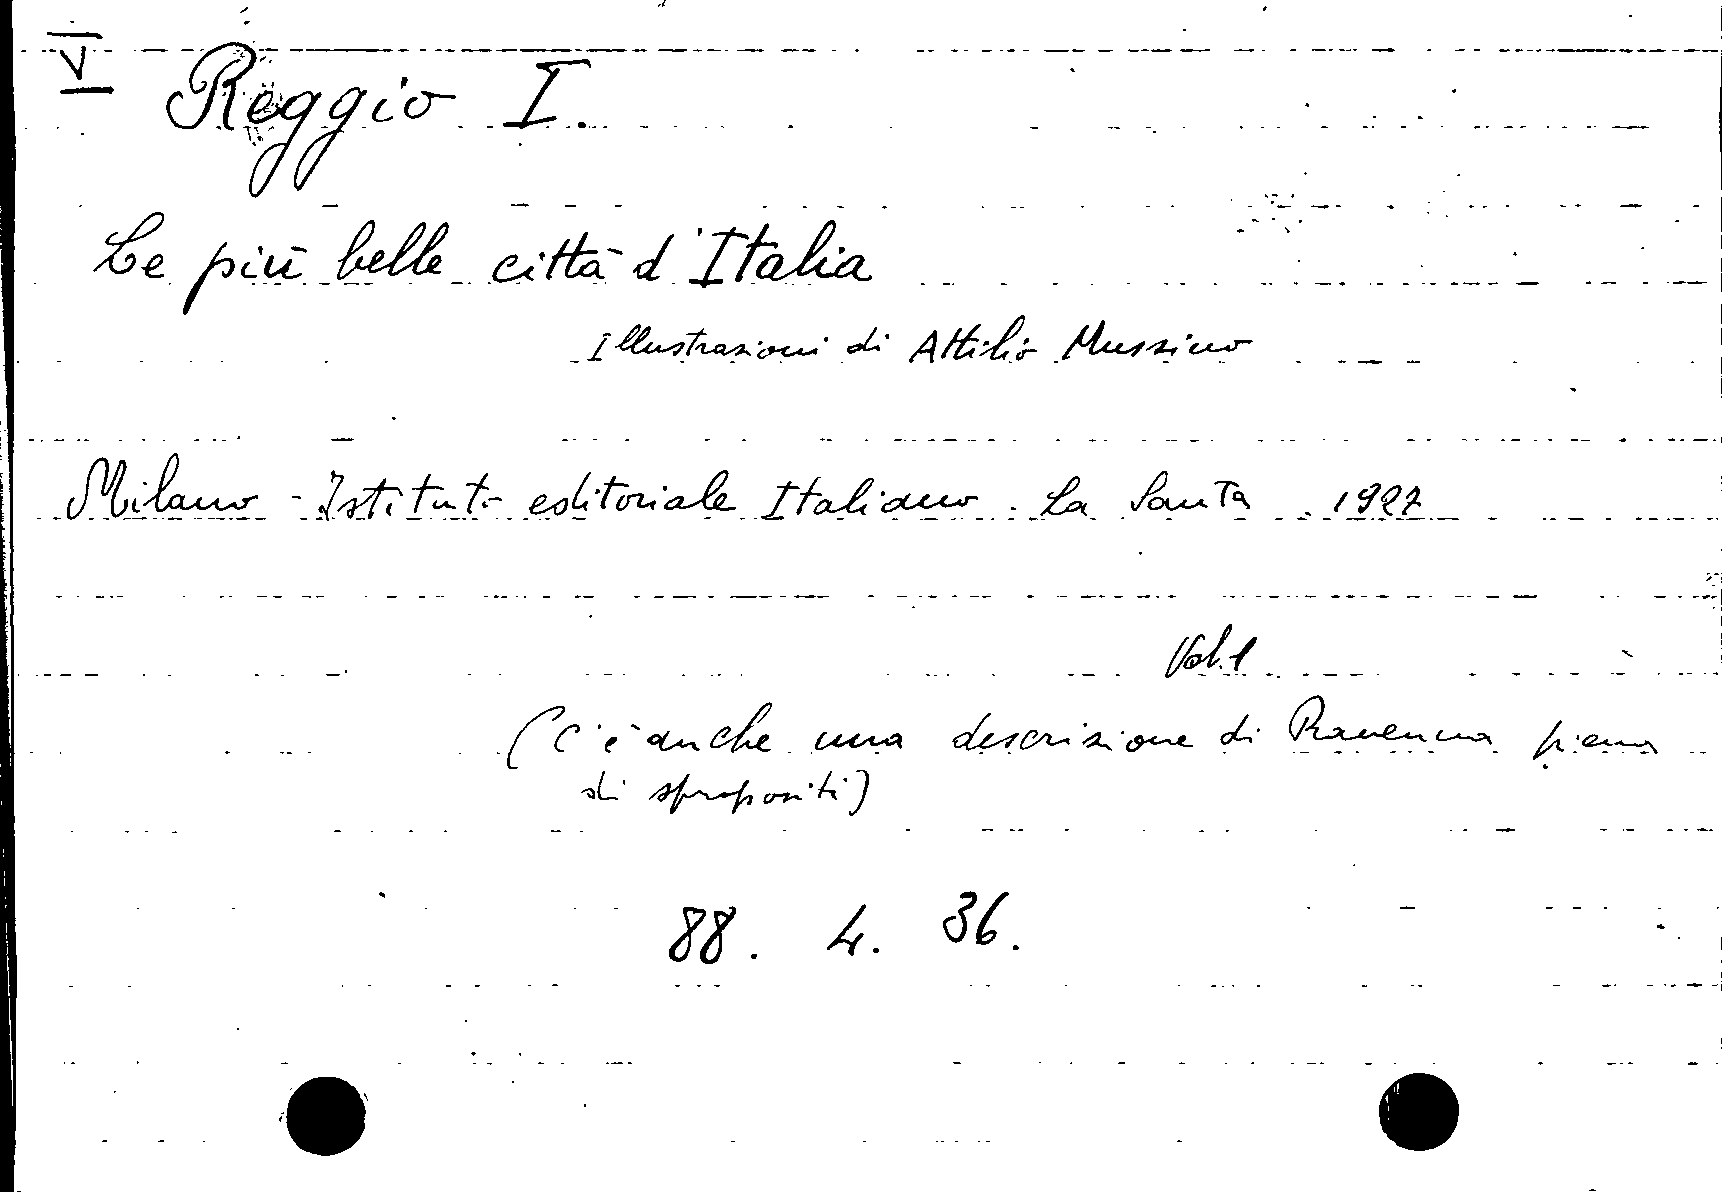 VI
Reggio I.
Le più belle città d'Italia
Illustrazioni di Attilio Mussino
Milano - Istituto editoriale Italiano. La Santa. 1927
Vol. 1
(C'è anche una descrizione di Ravenna piena
di spropositi)
88. 4. 36.